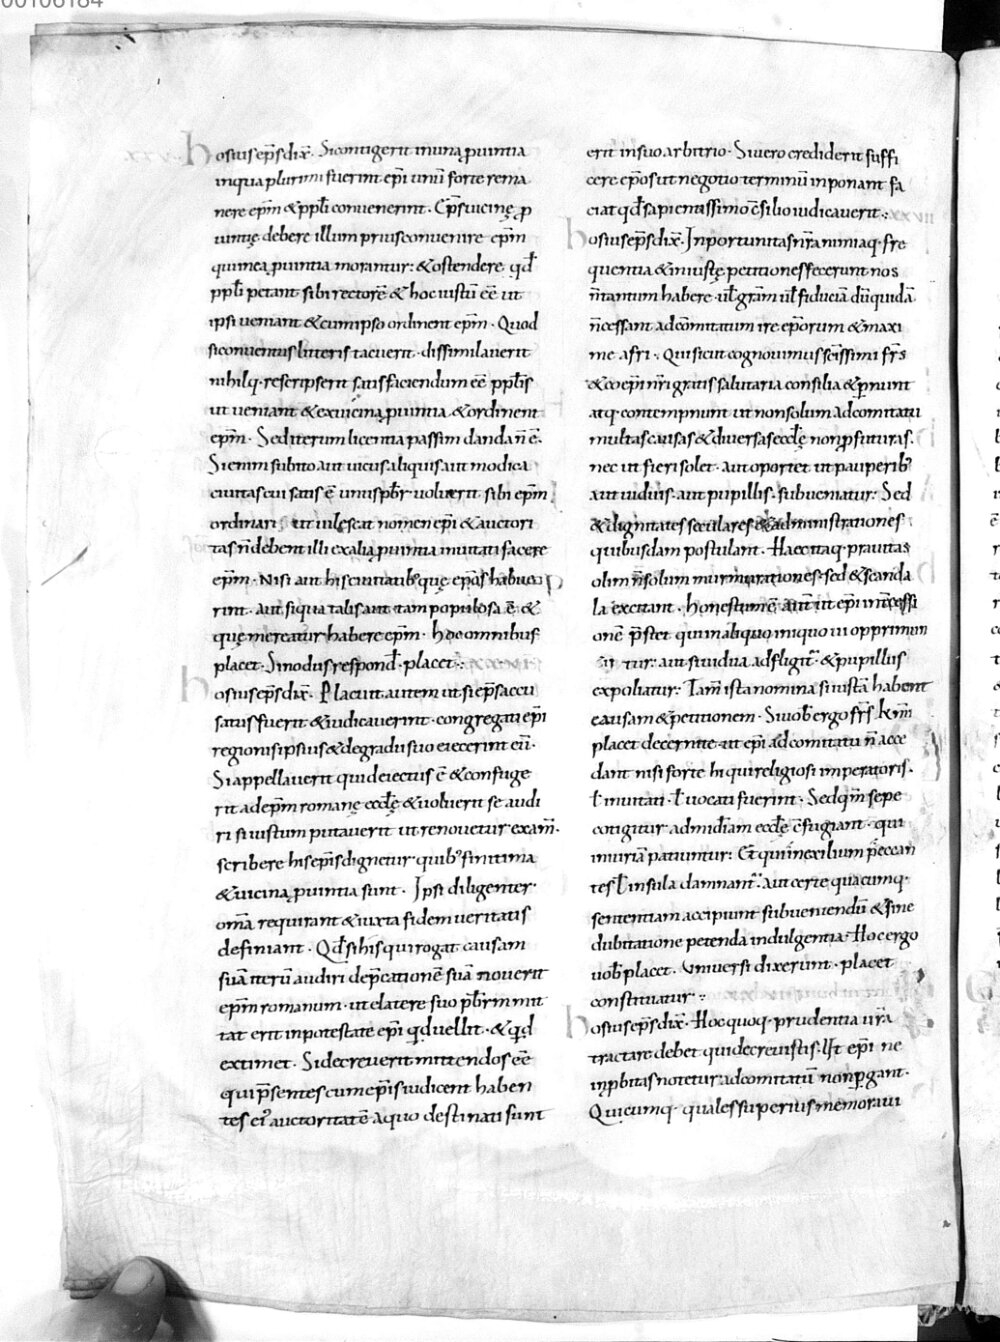 00106184
hosius ep̄s dix̄. Si contigerit in una ꝓuintia
in qua plurimi fuerint ep̄i unū forte rema
nere ep̄m & ppl̄i conuenerint. Ep̄s uicinę ꝓ
uintię debere illum prius conuenire ep̄m
qui in ea ꝓuintia moratur: & ostendere qd̄
ppl̄i petant sibi rectorē & hoc iustū eē ut
ipsi ueniant & cum ipso ordinent ep̄m. Quod
si conuentus litteris tacuerit. dissimilauerit
nihilq. rescripserit satisfaciendum eē ppl̄is
ut ueniant & ex uicina ꝓuintia & ordinent
ep̄m. Sed iterum licentia passim danda n̄ ē.
Si enim subito aut uicus aliquis aut modica
ciuitas cui satis ē unus pb̄r uoluerit sibi ep̄m
ordinari ut uilescat nomen ep̄i & auctori
tas n̄ debent illi ex alia ꝓuintia inuitati facere
ep̄m. Nisi aut his ciuitatibꝰ quę ep̄os habue
rint. aut si qua talis aut tam populosa ē &
quę mereatur habere ep̄m. hoc omnibus
placet. Sinodus respond̄. placet.
hosius ep̄s dix̄. Placuit autem ut si ep̄s accu
satus fuerit & iudicauerint. congregati ep̄i
regionis ipsius & de gradu suo eiecerint eū.
Si appellauerit qui deiectus ē & confuge
rit ad ep̄m romanę eccl̄ę & uoluerit se audi
ri si iustum putauerit ut renouetur exam̄.
scribere his ep̄is dignetur quibꝰ finitima
& uicina ꝓuintia sunt. Ipsi diligenter
om̄a requirant & iuxta fidem ueritatis
definiant. Qd̄ si his qui rogat causam
suā iterū audiri dep̄cationē suā mouerit
ep̄m romanum. ut e latere suo pb̄rm mit
tat erit in potestate ep̄i qd uellit. & qd̄
extimet. Si decreuerit mittendos eē
qui p̄sentes cum ep̄is iudicent haben
tes eiꝰ auctoritatē a quo destinati sunt
erit in suo arbitrio. Si uero crediderit suffi
cere ep̄os ut negotio terminū inponant fa
ciat qd̄ sapientissimo c̄silio iudicauerit:
hosius ep̄s dix̄. Inportunitas nr̄a nimiaq. fre
quentia & iniustę petitiones fecerunt nos
n̄ tantum habere. ul̄ gr̄am ul̄ fiduciā dū quidā
n̄ cessant ad comitatum ire ep̄orum & maxi
me afri. Qui sicut cognouimus sc̄issimi fr̄s
& coep̄i nr̄i gratis salutaria consilia & spernunt
atq. contempnunt ut non solum ad comitatū
multas causas & diuersas eccl̄ę non ꝓfuturas.
nec ut fieri solet. aut oportet ut pauperibꝰ
aut uiduis. aut pupillis. subueniatur: Sed
& dignitates seculares & administrationes
quibusdam postulant. Haec itaq. prauitas
olim n̄ solum murmurationes. sed & scanda
la excitant. honestum ē autē ut ep̄i intercessi
onē p̄stet qui in aliquo iniquo ui opprimun
tur: aut si uidua adfligit̄. & pupillus
expoliatur: Tam̄ ista nomina si iustā habent
causam & petitionem. Si uob̄ ergo fr̄s km̄i
placet decernite. ut ep̄i ad comitatū n̄ acce
dant nisi forte hi qui religiosi imperatoris.
ł inuitati. ł uocati fuerint. Sed qm̄ sepe
cotigitur ad mid̄iam eccl̄ę c̄fugiant. qui
iniuriā patiuntur: Et qui in exilium peccan
tes ł insula damnant̄. aut certe quacumq.
sententiam accipiunt subueniendū & sine
dubitatione petenda indulgentia. Hoc ergo
uob̄ placet. Uniuersi dixerunt. placet
constituatur:
hosius ep̄s dix̄. Hoc quoq. prudentia ur̄a
tractare debet qui decreuistis. Ut ep̄i ne
inpbitas notetur: ad comitatū non ꝑgant.
Quicumq. quales superius memoraui